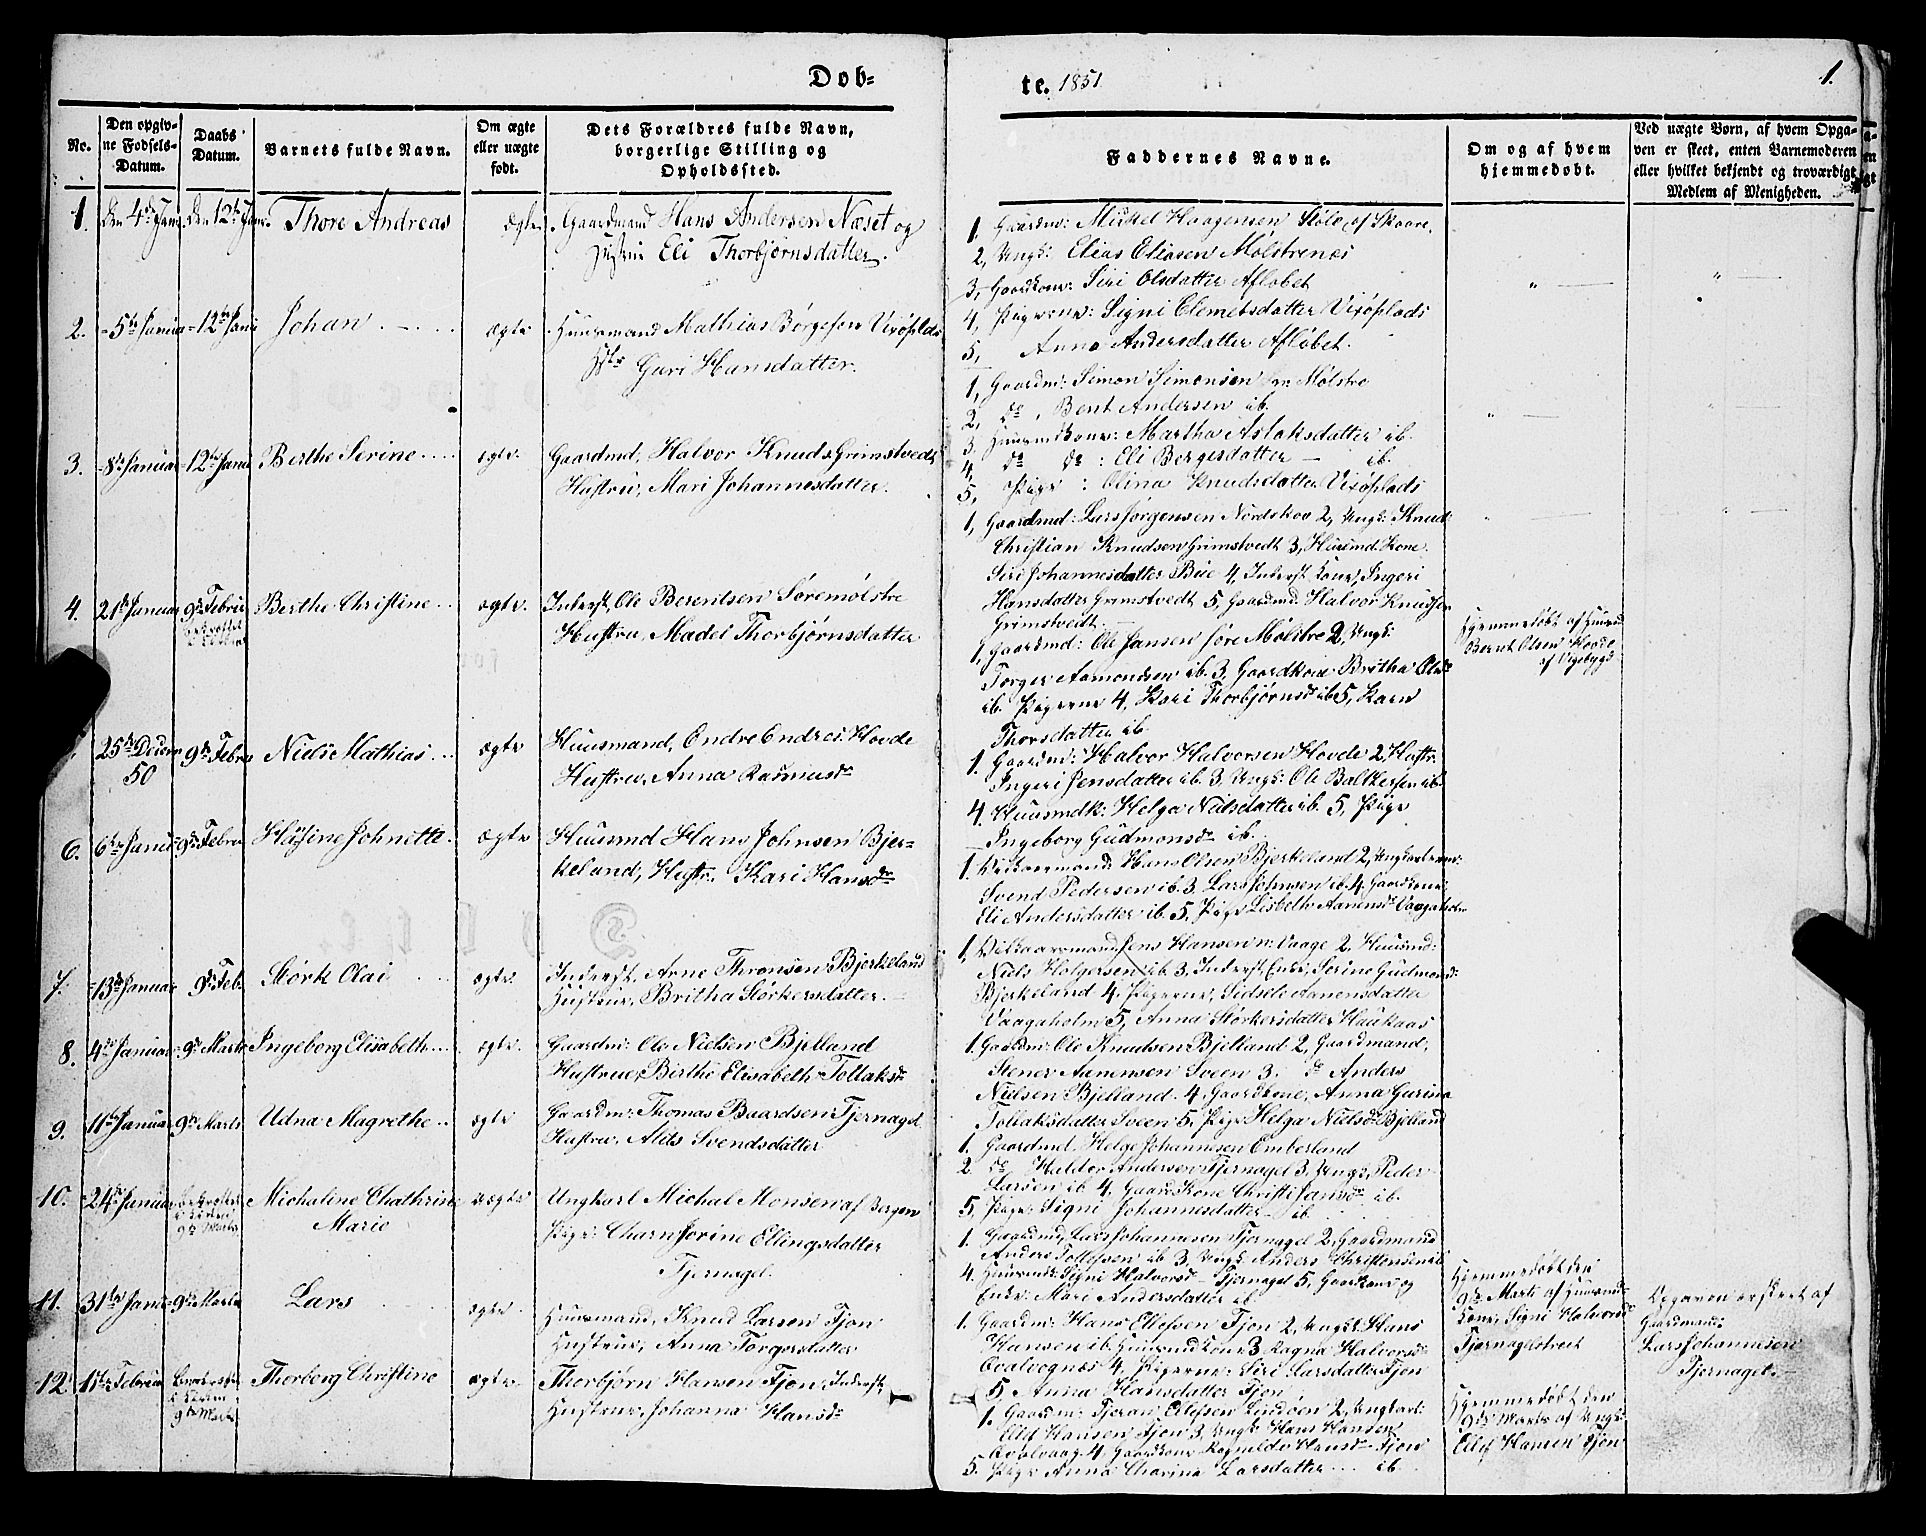 Dob=
te. 1851
1.
No.
Den opgiv=
ne Fodsels=
Datum.
Daabs
Datum.
Barnets fulde Navn.
Om ægte
eller uægte
fodt.
Dets Forældres fulde Navn,
borgerlige Stilling og
Opholdssted.
Faddernes Navne.
Om og af hvem
hjemmedobt.
Ved uægte Born, af hvem Opga=
ven er skeet, enten Barnemoderen
eller hvilket bekjendt og troværdigt
Medlem af Menigheden.
1. Den 4de Jan. Den 12te Jan. Thore Andreas ægte Gaardmand Hans Andersen Næset og
Hustrue Eli Thorbjørnsdatter.
2. 5te Januar 12te Janu Johan ægte Huusmand Mathias Børgesen Vixøplads
Hstr Guri Hansdatter.
3. 8de Januar 12te Janu Berthe Serine ægte. Gaardmd, Halvor Knuds Grimstvedt
Hustrue, Mari Johannesdatter.
4. 21de Januar 9de Februar Berthe Christine ægte. Inderst, Ole Berentsen Søremølstre
Hustru, Madei Thorbjørnsdatter
25de Decem 9de Febru Niels Mathias ægte Huusmand, Endre Endres: Hovde
50
Hustrue, Anna Rasmusdr
6. 6te Januar 9de Febru Hansine Johnette. ægte Huusmd Hans Johnsen Bjer=
keland, Hustr. Kari Hansdr
7. 13de Januar 9de Feb. Størk Olai ægte. Inderst, Arne Thronsen Bjerkeland
Hustrue, Britha Størkersdatter.
8. 4de Januar 9de Marts Ingeborg Elisabeth ægte. Gaardm: Ole Nielsen Bjelland
Hustrue, Birthe Elisabeth Tollaksdr
9. 11te Januar 9de Marts Udna Magrethe ægte Gaardm: Thomas Baardsen Tjernagel
Hustrue, Alits Svendsdatter
10. 24de Januar 9de Marts Michaline Chathrine uægte Ungkarl Michal Monsen af Bergen
Marie
Pige: Charn Serine Ellingsdatter
Tjernagel.
11. 31te Janu 9de Marts Lars ægte. Huusmand, Knud Larsen Tjon
Hustrue, Anna Torgersdatter
12 11te Februar 9de Marts Thorberg Christine ægte Thorbjørn Hansen Tjon, Inderst,
Hustrue, Johanna Hansdr
1. Gaardm: Mickel Haagensen Stole, af Skaare.
2, Ungk: Elias Eliasen Mølstrenes
3, Gaardkone: Siri Olsdatter Afløbet
4, Pigerne: Signi Clemetsdatter Vixøplads
5, Anna Andersdatter Afløbet.
1, Gaardm: Simon Simonsen Mølstre
2, do, Bent Andersen ib.
3, Huusmdkone: Martha Aslaksdatter ib.
4, do do: Eli Bergersdatter — ib.
5, Pige: Olina Knudsdatter Vixøplads
1, Gaardmd: Lars Jørgensen Nordskov 2, Ungk: Knud
Christian Knudsen Grimstvedt 3, Huusmd. Kone.
Siri Johannesdatter Bue 4, Inderst kone, Ingeri
Hansdatter Grimstvedt 5, Gaardmd: Halvor Knudsen
Grimstvedt.
1, Gaardmd: Ole Jansen Søre Mølstre 2, Ungk:
Torger Aamondsen ib. 3, Gaardkone Britha Olsdr
ib. Pigerne 4, Kari Thorbjørnsdr ib 5, Karn
Thorsdatter ib.
1. Gaardm: Halvor Halvorsen Hovde 2, Hustr:
Ingeri Jensdatter ib. 3, Ungk: Ole Baltsersen ib.
4. Huusmdk: Helga Nielsdatter ib. 5, Pige
Ingeborg Gudmonsdr ib.
1. Vilkaarsmand Hans Olsen Bjerkeland 2, Ungkarlene:
Svend Pedersen ib. 3. Lars Johnsen ib. 4. Gaardkone:
Eli Andersdatter ib. 5, Pige Lisbeth Aanensdr Vaagaholm
1, Vilkaarsmand Jens Hansen n: Vaage 2. Huusmd:
Niels Holgersen ib 3. Inderst, Enke, Serine Gudmunds:
Bjerkeland 4. Pigerne, Sidsele Aanensdatter
Vaagaholm 5, Anna Størkersdatter Haukaas
1. Gaardm: Ole Knudsen Bjelland 2, Gaardmand,
Stener Aanensen Sveen 3. do Anders
Nielsen Bjelland. 4. Gaardkone, Anna Gurina
Tollaksdatter Sveen 5, Pige Helga Nielsdr Bjelland
1. Gaardmd. Helge Johannesen Emberland
2 do Haldor Andersen Tjernagel 3, Ungk, Peder
Larsen ib 4. Gaardkone Christi Jansdr ib.
5, Pige: Signi Johannesdatter ib.
1. Gaardmd, Lars Johannesen Tjernagel 2, Gaardmand
Anders Tollefsen ib 3, Ungk. Anders Christensen ib
4. Huusmdk: Signi Halvorsdr Tjernagel 5, Gaardkone og
Enke: Mari Andersdatter ib.
1. Gaardm: Hans Ellefsen Tjon 2, Ungk: Hans
Hansen ib. Huusmdkone 3 Ragna Halvorsdr
Qvalvognæs 4, Pigerne: Siri Larsdatter Tjon
5, Anna Hansdatter Tjon
1. Gaardm: Tjeran Eilefsen Lindøen 2, Ungkarl:
Elef Hansen Tjon 3, Ungk: Hans Hansen
Qvalvaag 4, Gaardkone Ragnilde Hansdr Tjon
5. Pige Anna Charina Larsdatter ib.
Hjemmedøbt af Huusmd
Bernt Olsen Hovde
af Vigebygd
Hjemmedøbt den
9de Marts af Huusmd=
kone, Signi Halvorsdr
Tjernagelstræet
Hjemmedøbt den
9de Marts af Ungk:
Eilef Hansen Tjon
Opgaven er skeet af
Gaardmand:
Lars Johannesen
Tjernagel.